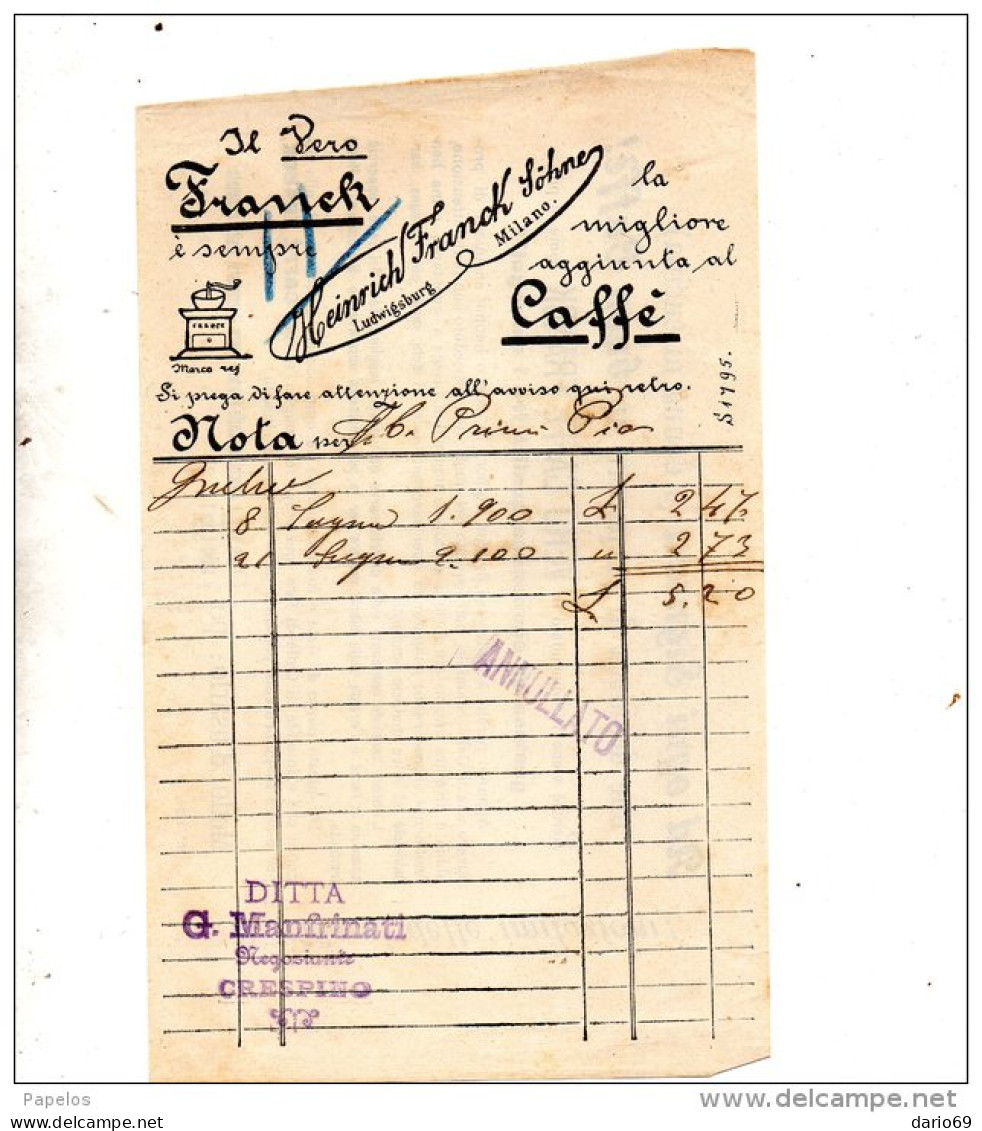 Il Vero
Franck
è sempre
Heinrich Franck Söhne
Ludwigsburg Milano.
la
migliore
aggiunta al
Caffè
FRANCK
Marca
Si prega di fare attenzione all'avviso qui retro.
S1795.
Nota per
8 1.900 £ 247
21 2.100 " 273
£ 5.20
ANNULLATO
DITTA
G. Manfrinati
Negoziante
CRESPINO
Papelos
www.delcampe.net
dario69